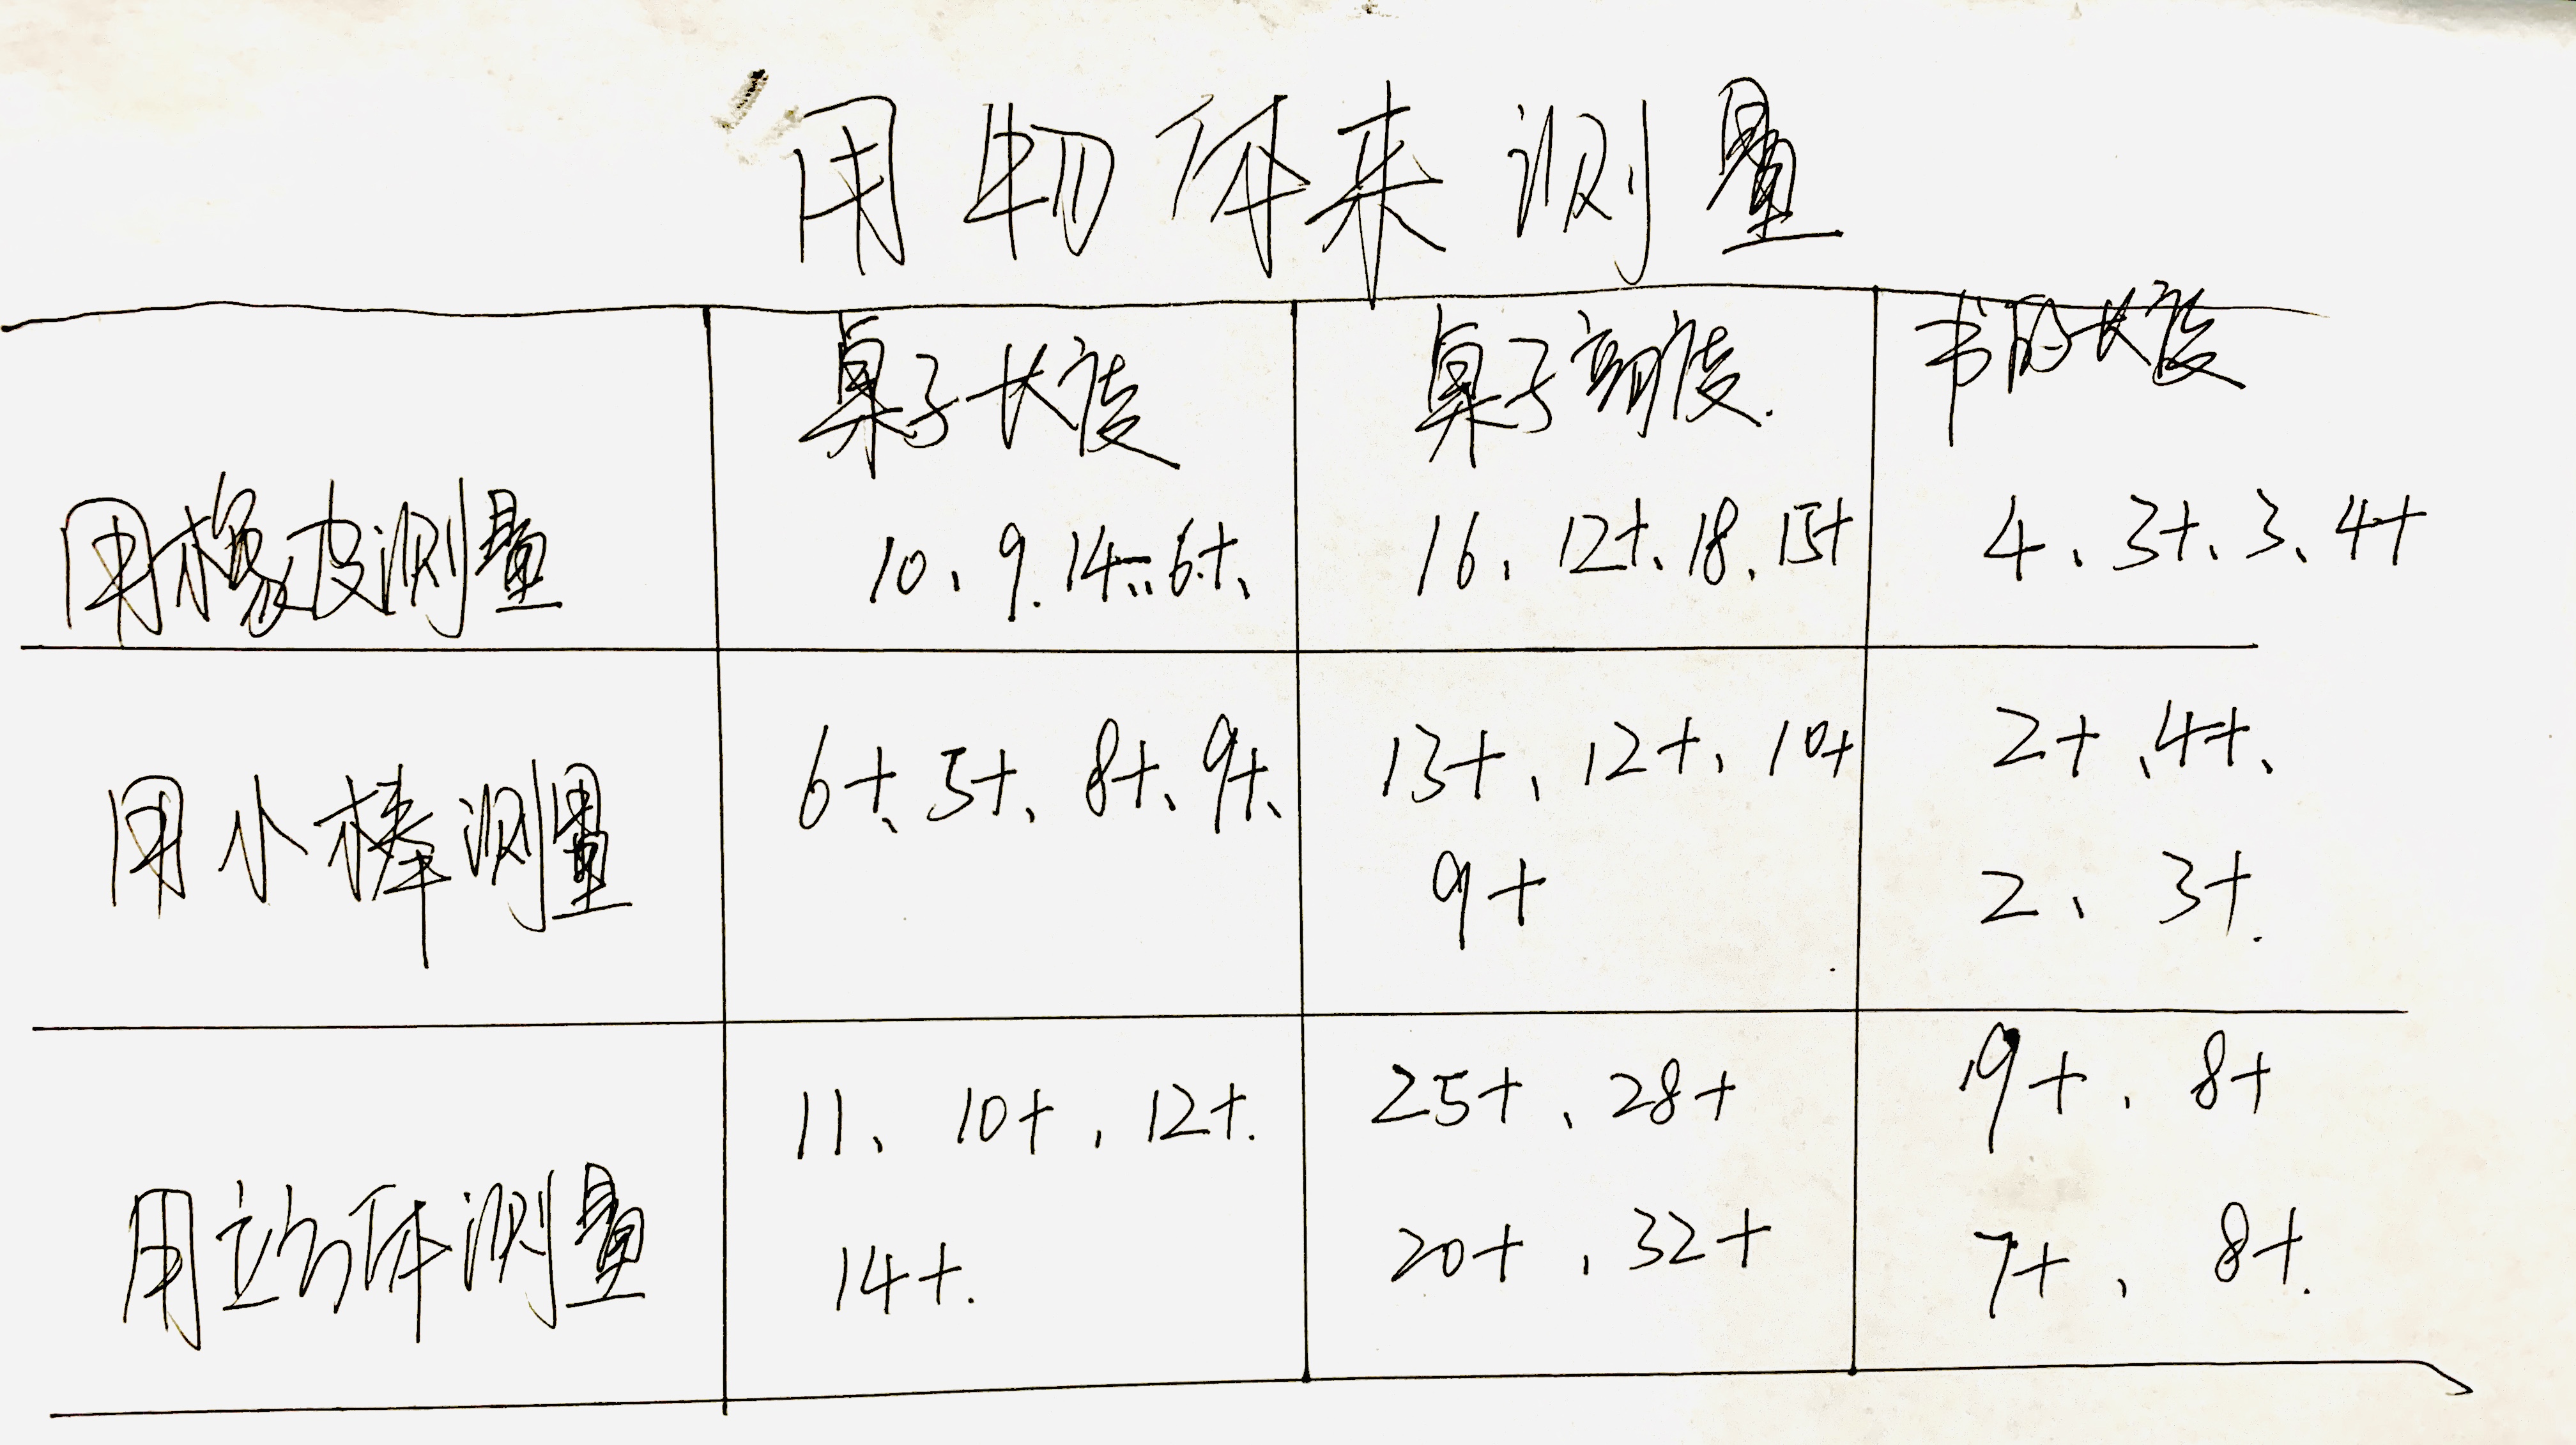 用物体来测量
桌子长度 桌子高度. 书的长度
用橡皮测量 10、9.14、6+、 16、12+、18、15+ 4、3+、3、4+
用小棒测量 6+、5+、8+、9+、 13+、12+、10+ 2+、4+、
9+ 2、3+.
用立方体测量 11、10+、12+. 25+、28+ 9+、8+
14+. 20+、32+ 7+、8+.